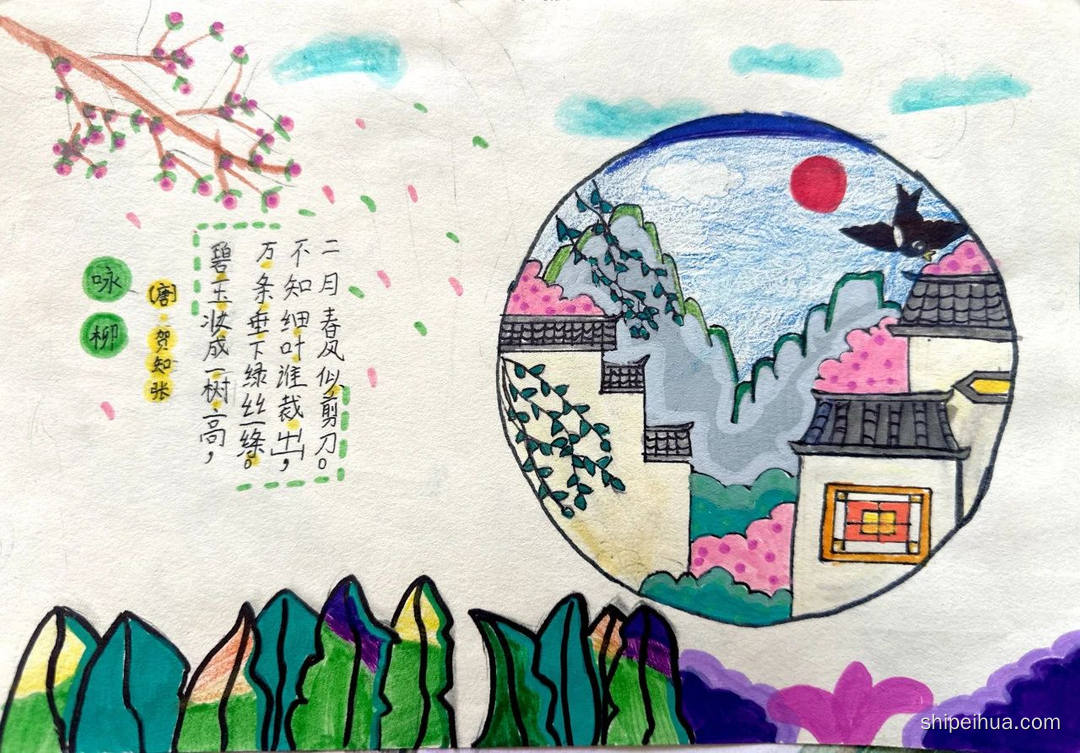 咏柳
(唐)贺知张
碧玉妆成一树高，
万条垂下绿丝绦。
不知细叶谁裁出，
二月春风似剪刀。
shipeihua.com